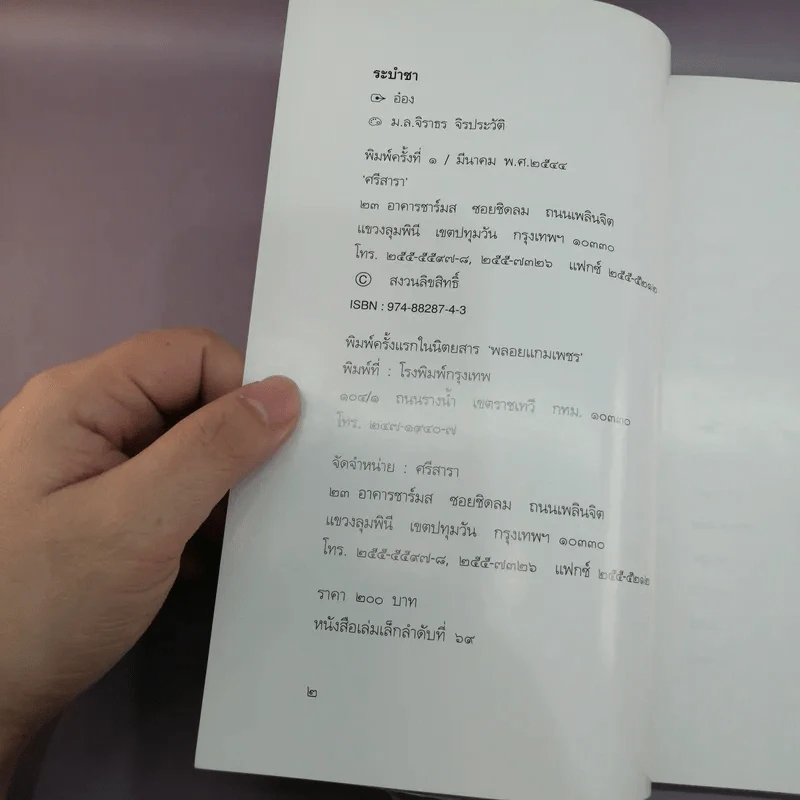 ระบำชา
อ๋อง
ม.ล.จิราธร จิรประวัติ
พิมพ์ครั้งที่ ๑ / มีนาคม พ.ศ.๒๕๔๔
'ศรีสารา'
๒๓ อาคารชาร์มส ซอยชิดลม ถนนเพลินจิต
แขวงลุมพินี เขตปทุมวัน กรุงเทพฯ ๑๐๓๓๐
โทร. ๒๕๕-๕๕๙๗-๘, ๒๕๕-๗๓๒๖ แฟกซ์ ๒๕๕-๕๒๑๒
© สงวนลิขสิทธิ์
ISBN : 974-88287-4-3
พิมพ์ครั้งแรกในนิตยสาร 'พลอยแกมเพชร'
พิมพ์ที่ : โรงพิมพ์กรุงเทพ
๑๐๔/๑ ถนนรางน้ำ เขตราชเทวี กทม. ๑๐๓๓๐
โทร. ๒๔๗-๑๙๔๐-๗
จัดจำหน่าย : ศรีสารา
๒๓ อาคารชาร์มส ซอยชิดลม ถนนเพลินจิต
แขวงลุมพินี เขตปทุมวัน กรุงเทพฯ ๑๐๓๓๐
โทร. ๒๕๕-๕๕๙๗-๘, ๒๕๕-๗๓๒๖ แฟกซ์ ๒๕๕-๕๒๑๒
ราคา ๒๐๐ บาท
หนังสือเล่มเล็กลำดับที่ ๖๙
๒